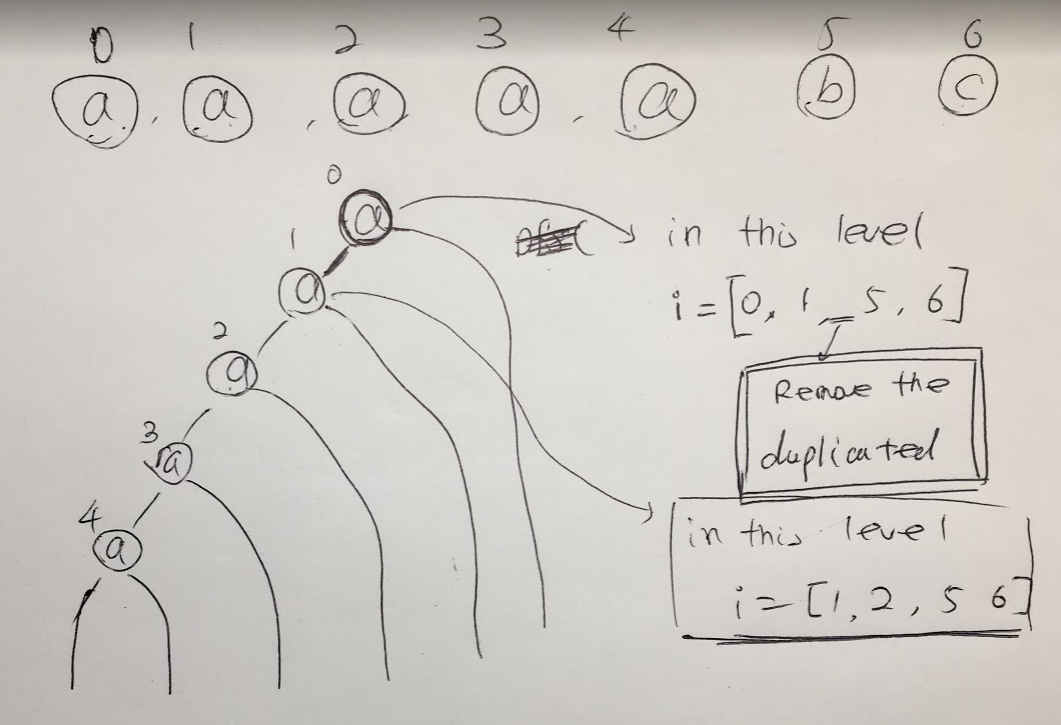 0 1 2 3 4 5 6
a , a , a a . a b c
0
a
1
a
2
a
3
a
4
a
in this level
i = [0, 1 _ 5, 6]
Remove the
duplicated
in this level
i = [1, 2, 5 6]